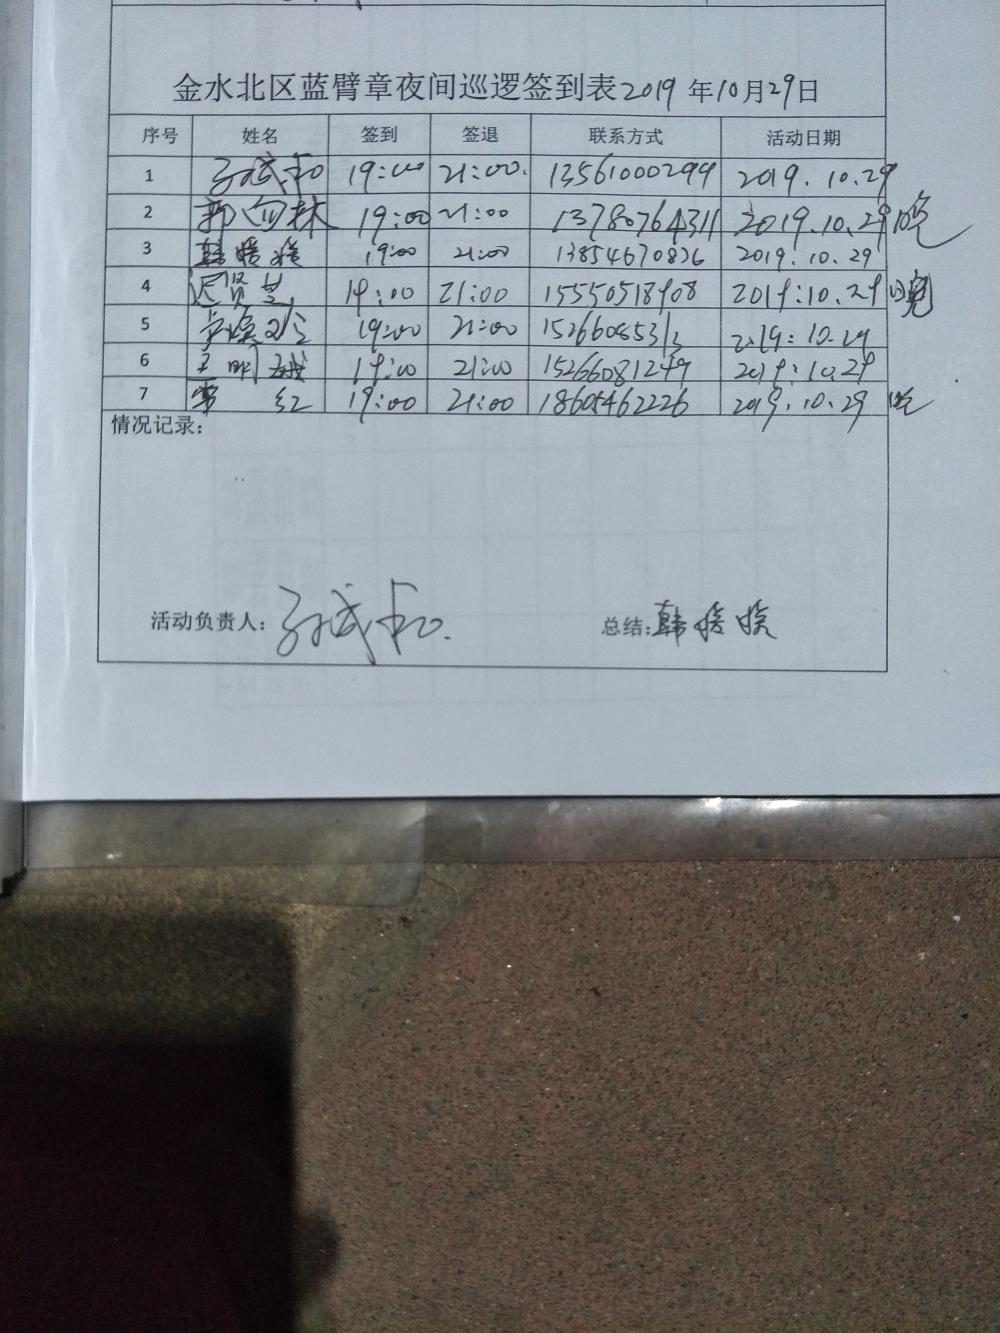 金水北区蓝臂章夜间巡逻签到表2019年10月29日
序号 姓名 签到 签退 联系方式 活动日期
1 19:00 21:00. 13561000299 2019.10.29
2 郭向林 19:00 21:00 13780764311 2019.10.29晚
3 韩媛媛 19:00 21:00 13854670826 2019.10.29
4 迟贤芝 19:00 21:00 15550518908 2019:10.29日晚
5 19:00 21:00 15266085313 2019:10.29
6 王明娥 19:00 21:00 15266081249 2019:10.29
7 红 19:00 21:00 18605462226 2019.10.29晚
情况记录:
活动负责人: 总结:韩媛媛